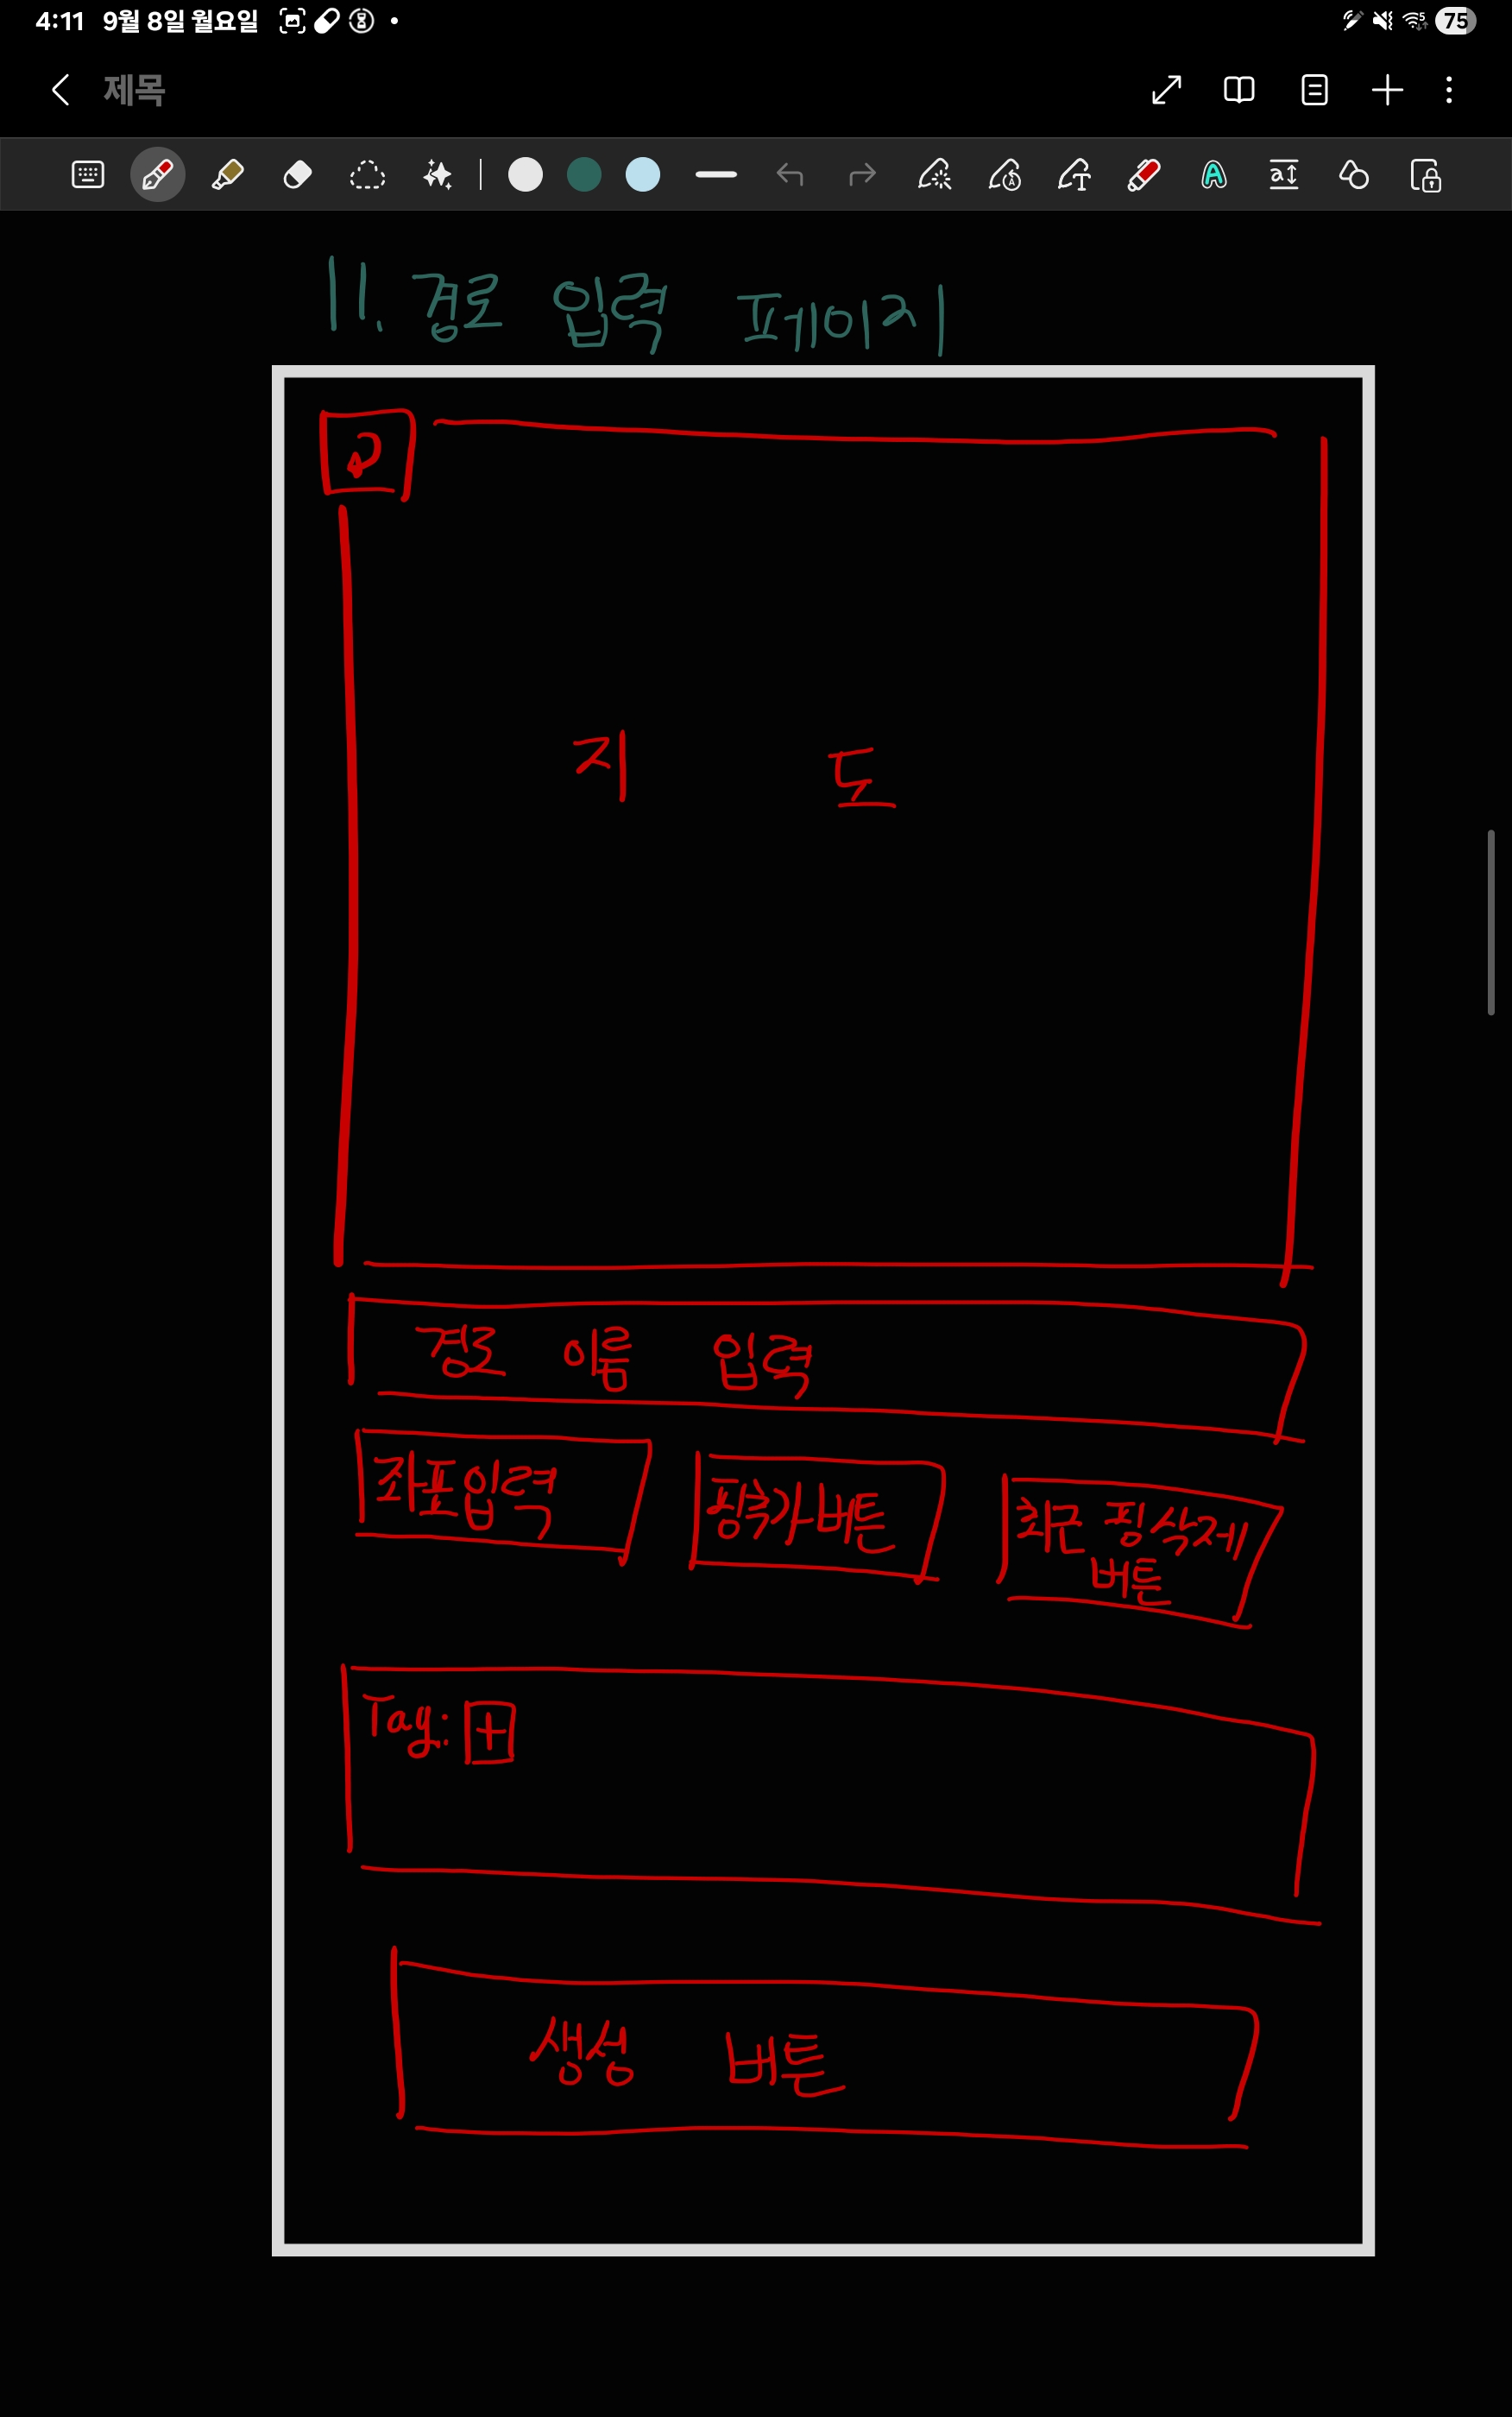 4:11 9월 8일 월요일 75
제목
11. 경로 입력 페이지
지 도
경로 이름 입력
좌표입력 핑추가버튼 최근 핑삭제 버튼
Tag: +
생성 버튼